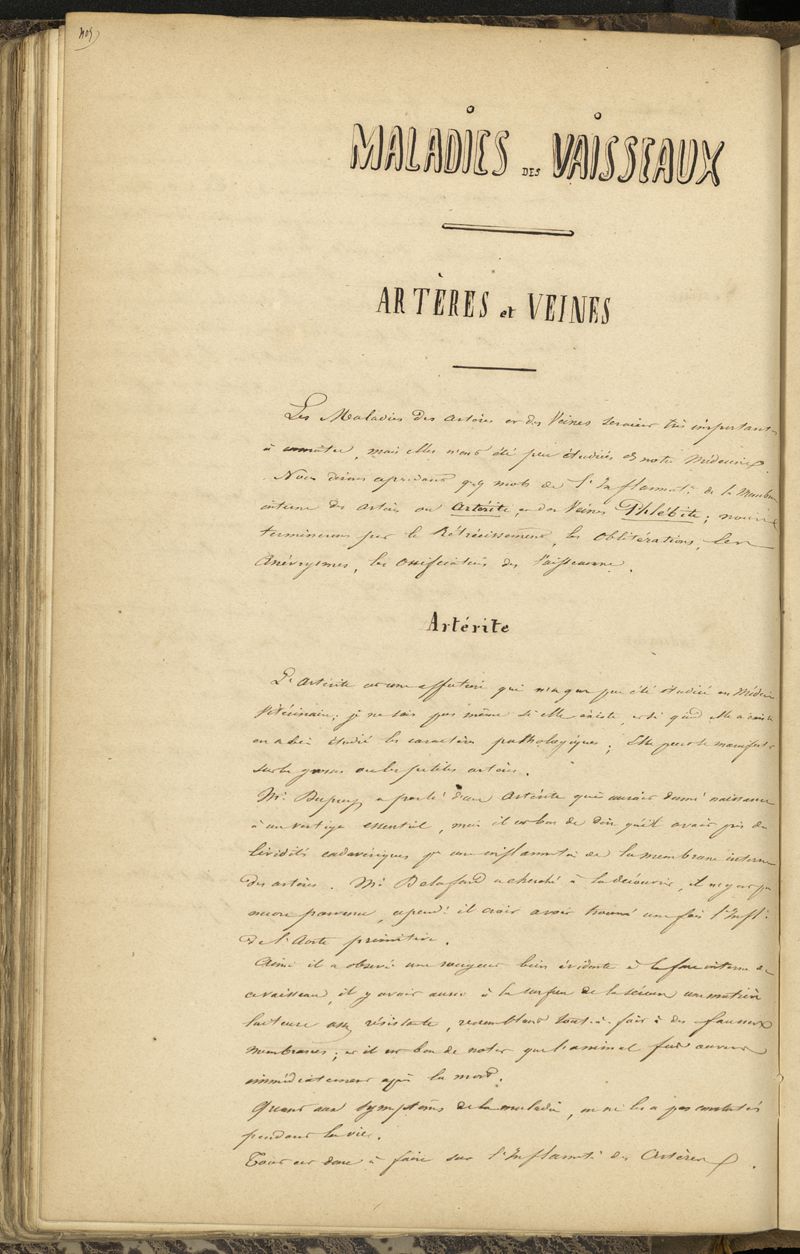 MALADIES DES VAISSEAUX
ARTÈRES et VEINES
Les Maladies des artères et des Veines seraient très important
à connaître, mais elles n'ont été peu étudiées ds notre Médecine.
Nous dirons cependant qq mots de l'Inflammt. de la Membrane
interne des artères ou Artérite, et des Veines Phlébite; nous
terminerons par le Rétrécissement, les Oblitérations, les
Anévrysmes, les Ossifications des Vaisseaux.
Artérite
L'artérite est une affection qui n'a que peu été étudiée en Médecine
Vétérinaire; je ne sais pas même si elle existe, et si quand elle a existé
on a bien étudié les caractères pathologiques; Elle peut se manifester
sur les grosses ou les petites artères.
Mr. Dupuy a parlé d'une Artérite qui aurait donné naissance
à un vertige essentiel, mais il est bon de dire qu'il avait pris des
lividités cadavériques pr une inflammt. de la membrane interne
des artères. Mr. Delafond a cherché à la découvrir, il n'y est pas
encore parvenu, cepend. il croit avoir trouvé une fois l'Infl.
de l'Aorte primitive.
Ainsi il a observé une rougeur bien évidente à la face interne de
ce vaisseau, il y avait aussi à la surface de la séreuse une matière
assez résistante, ressemblant tout-à-fait à des fausses
membranes; et il est bon de noter que l'animal fut ouvert
immédiatement après la mort.
Quant aux symptômes de la maladie, on ne les a pas constatés
pendant la vie.
sur l'Inflammt. des Artères.